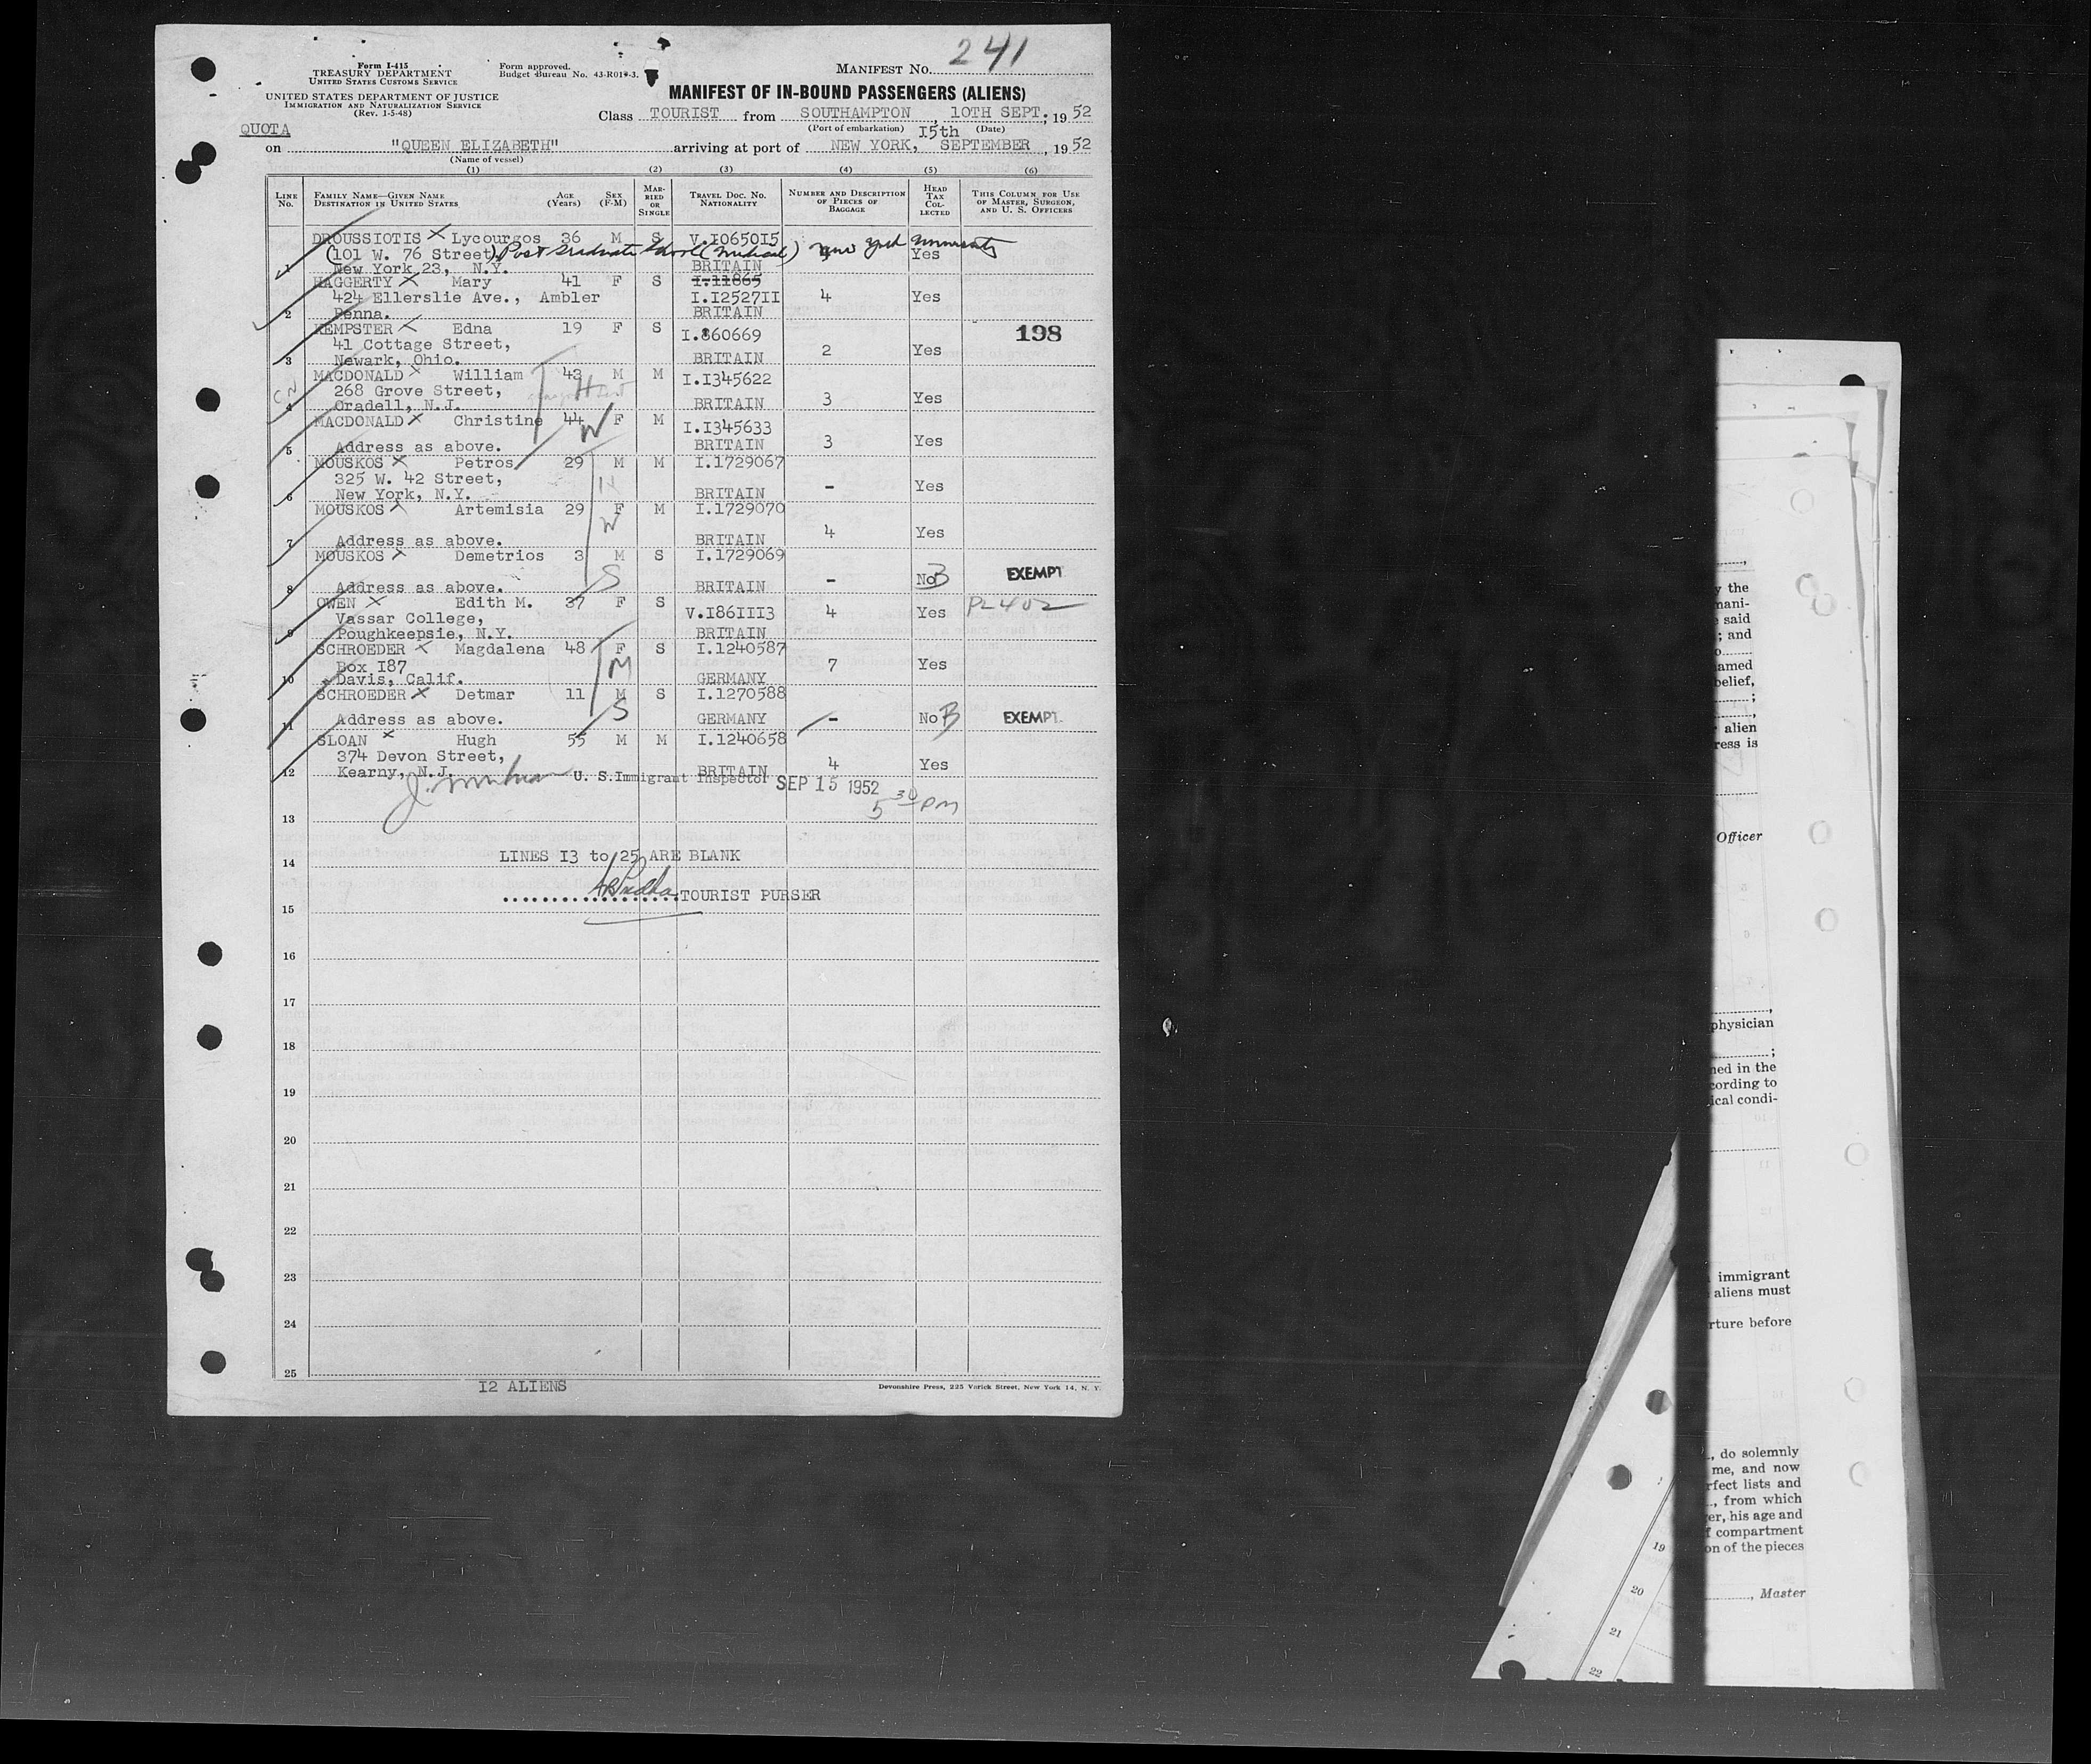 Form I-415
TREASURY DEPARTMENT
UNITED STATES CUSTOMS SERVICE
UNITED STATES DEPARTMENT OF JUSTICE
IMMIGRATION AND NATURALIZATION SERVICE
(Rev. 1-5-48)
Form approved.
Budget Bureau No. 43-R019-3.
MANIFEST NO. 241
MANIFEST OF IN-BOUND PASSENGERS (ALIENS)
Class TOURIST from SOUTHAMPTON, 10TH SEPT; 1952
(Port of embarkation) I5th (Date)
QUOTA
on "QUEEN ELIZABETH" arriving at port of NEW YORK, SEPTEMBER, 1952
(Name of vessel)
(1) (2) (3) (4) (5) (6)
LINE No. FAMILY NAME—GIVEN NAME DESTINATION IN UNITED STATES AGE (Years) SEX (F-M) MARRIED OR SINGLE TRAVEL DOC. NO. NATIONALITY NUMBER AND DESCRIPTION OF PIECES OF BAGGAGE HEAD TAX COLLECTED THIS COLUMN FOR USE OF MASTER, SURGEON, AND U. S. OFFICERS
DROUSSIOTIS X Lycourgos 36 M S V.I065015
(101 W. 76 Street) Post Graduate School (Medical) New York University Yes
1 New York 23, N.Y. BRITAIN
HAGGERTY X Mary 41 F S I.11865
424 Ellerslie Ave., Ambler I.I2527II 4 Yes
2 Penna. BRITAIN
KEMPSTER X Edna 19 F S I.860669 198
41 Cottage Street, 2 Yes
3 Newark, Ohio. BRITAIN
MACDONALD X William 43 M M I.I345622
268 Grove Street, H
4 Oradell, N.J. BRITAIN 3 Yes
MACDONALD X Christine 44 W F M I.I345633
5 Address as above. BRITAIN 3 Yes
MOUSKOS X Petros 29 M M I.1729067
325 W. 42 Street, H
6 New York, N.Y. BRITAIN - Yes
MOUSKOS X Artemisia 29 F M I.1729070
W
7 Address as above. BRITAIN 4 Yes
MOUSKOS X Demetrios 3 M S I.1729069
8 Address as above. S BRITAIN - No B EXEMPT
OWEN X Edith M. 37 F S V.I86III3 4 Yes PL 402
Vassar College,
9 Poughkeepsie, N.Y. BRITAIN
SCHROEDER X Magdalena 48 F S I.1240587
Box I87 M 7 Yes
10 Davis, Calif. GERMANY
SCHROEDER X Detmar 11 M S I.1270588
11 Address as above. S GERMANY - No B EXEMPT.
SLOAN X Hugh 55 M M I.1240658
374 Devon Street, 4 Yes
12 Kearny, N.J. BRITAIN
U. S. Immigrant Inspector SEP 15 1952
5 30 PM
13
14 LINES I3 to 25 ARE BLANK
15 TOURIST PURSER
16
17
18
19
20
21
22
23
24
25
I2 ALIENS
Devonshire Press, 225 Varick Street, New York 14, N. Y.
y the
said
; and
alien
Officer
physician
immigrant
aliens must
before
, do solemnly
me, and now
lists and
., from which
, his age and
compartment
of the pieces
, Master
19
20
21
22